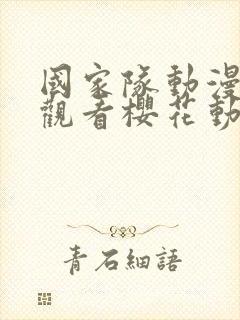 國家隊動漫
觀看櫻花動
青石細語